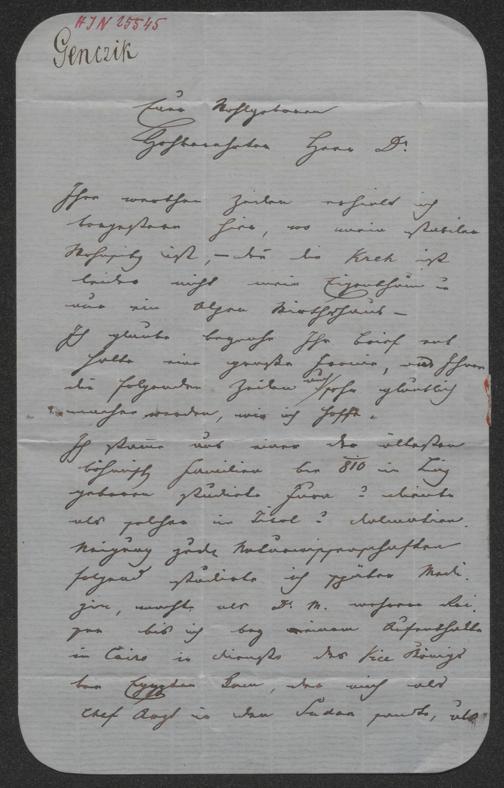 HIN 25545
Genczik
Euer Wohlgeboren
Hochverehrter Herr Dr
Ihre werthen Zeilen erhielt ich
hier, wo mein stabiler
Wohnsitz ist, – den die Kreh ist
leider nicht mein Eigenthum
nur ein Wirthshaus –
Ich glaube Ihr Brief ent
halte eine große, und Ihnen
die folgenden Zeilen glücklich
machen werden, wie ich hoffe.
Ich stamme aus einer der ältesten
böhmisch Familien bin 810 in Linz
geboren studierte Jura diente
als solcher in Tirol Dalmatien.
Neigung Naturwissenschaften
folgend studierte ich später Medi
zin, machte als Dr. M. mehrere Rei
sen bis ich bey einem Aufenthalte
in Cairo in Dienste des Vice Königs
von Egypten kam, der mich als
Chef Arzt in den Sudan sandte, als